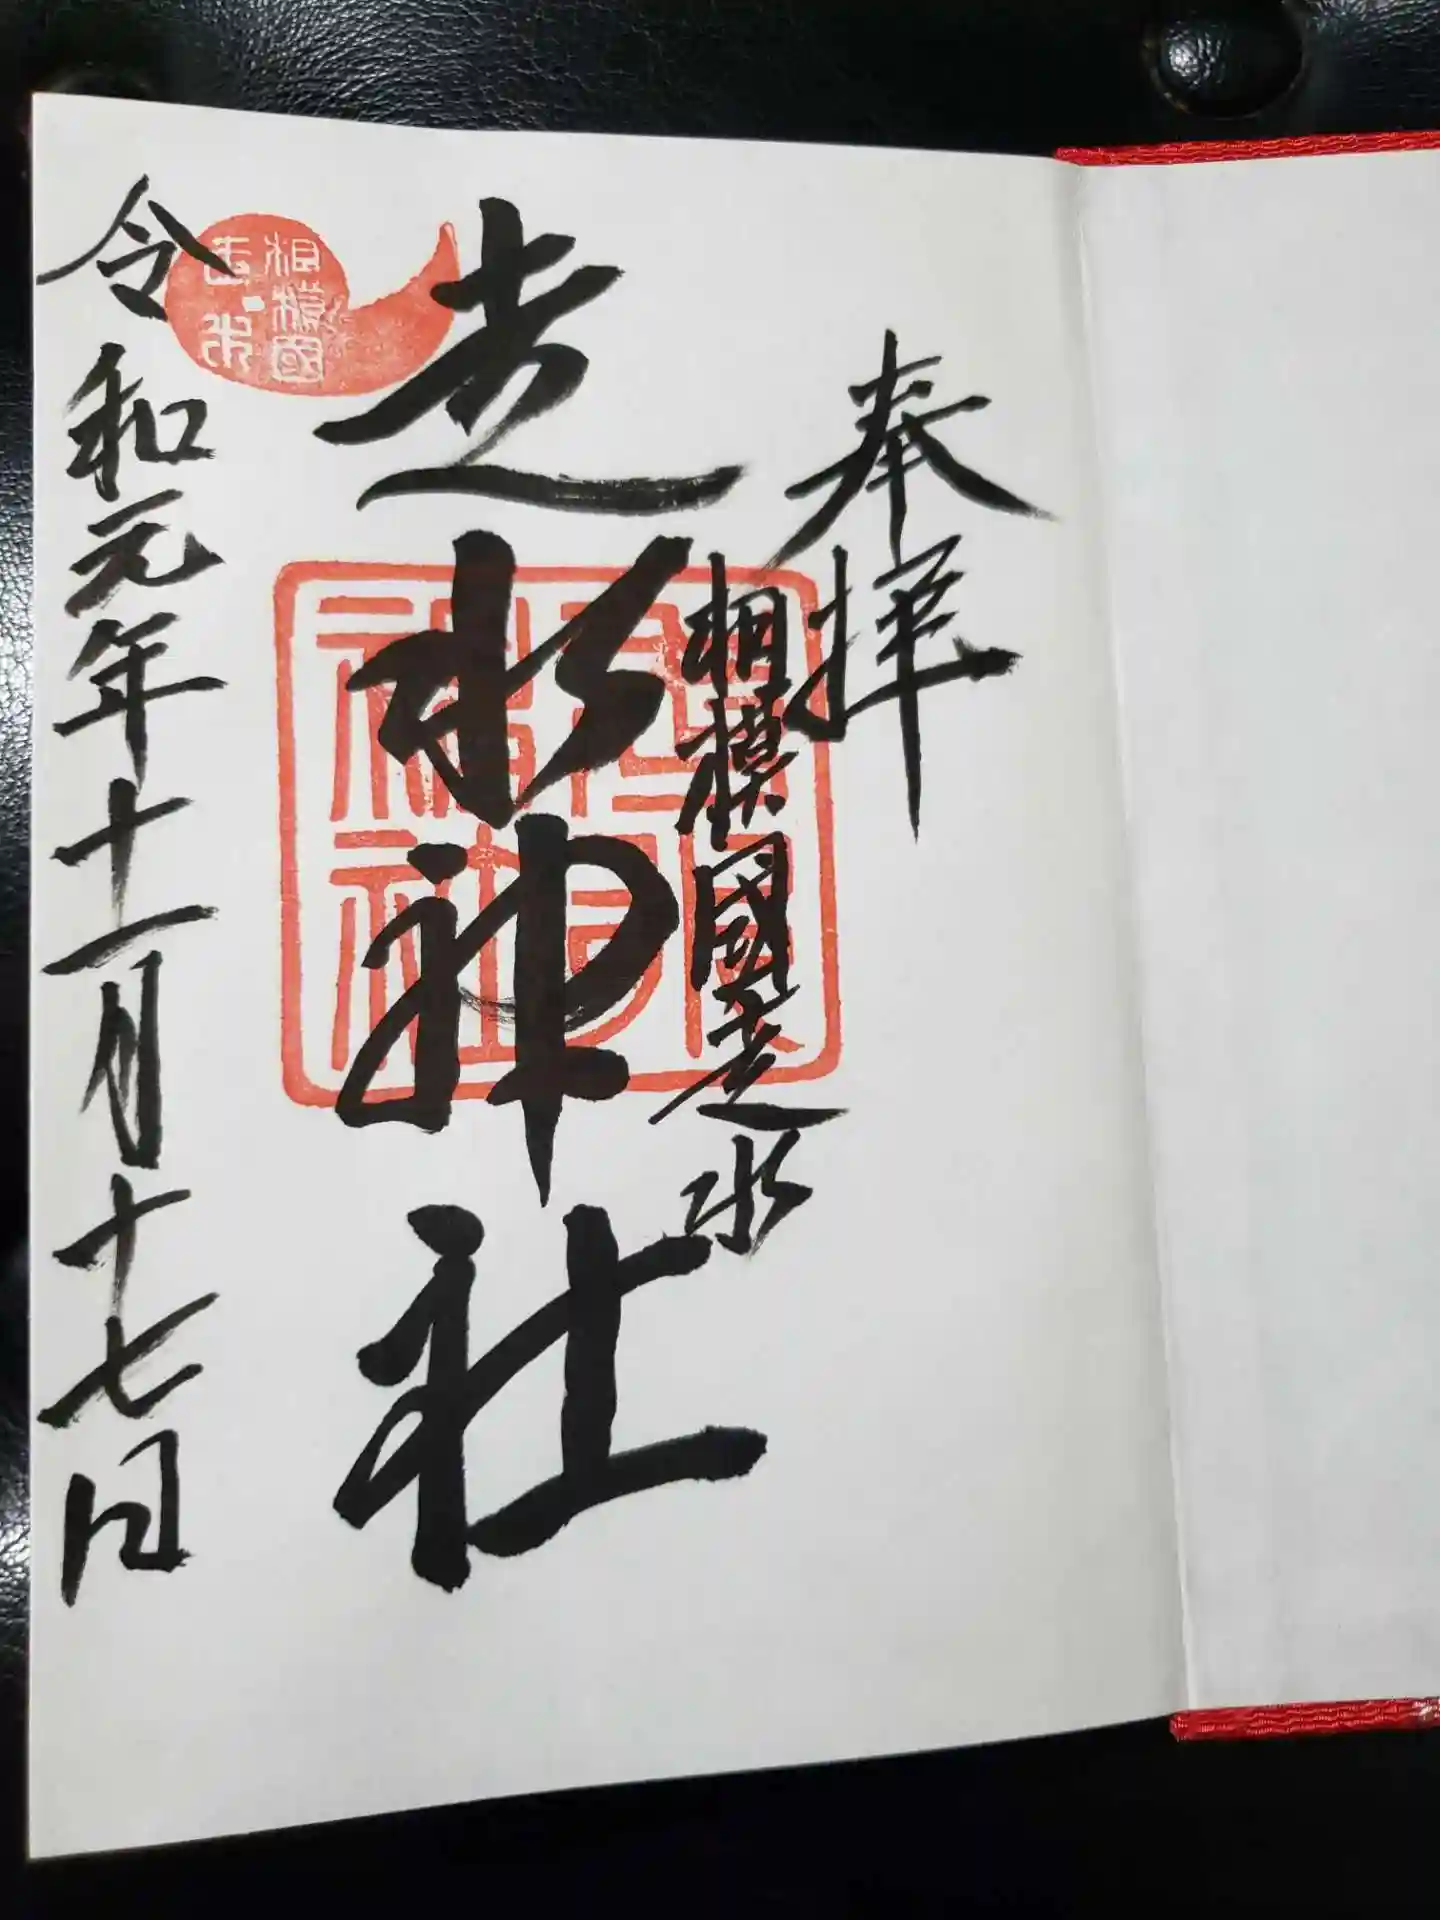 奉拝
相模國走水
走水神社
相模國
走水
令和元年十一月十七日